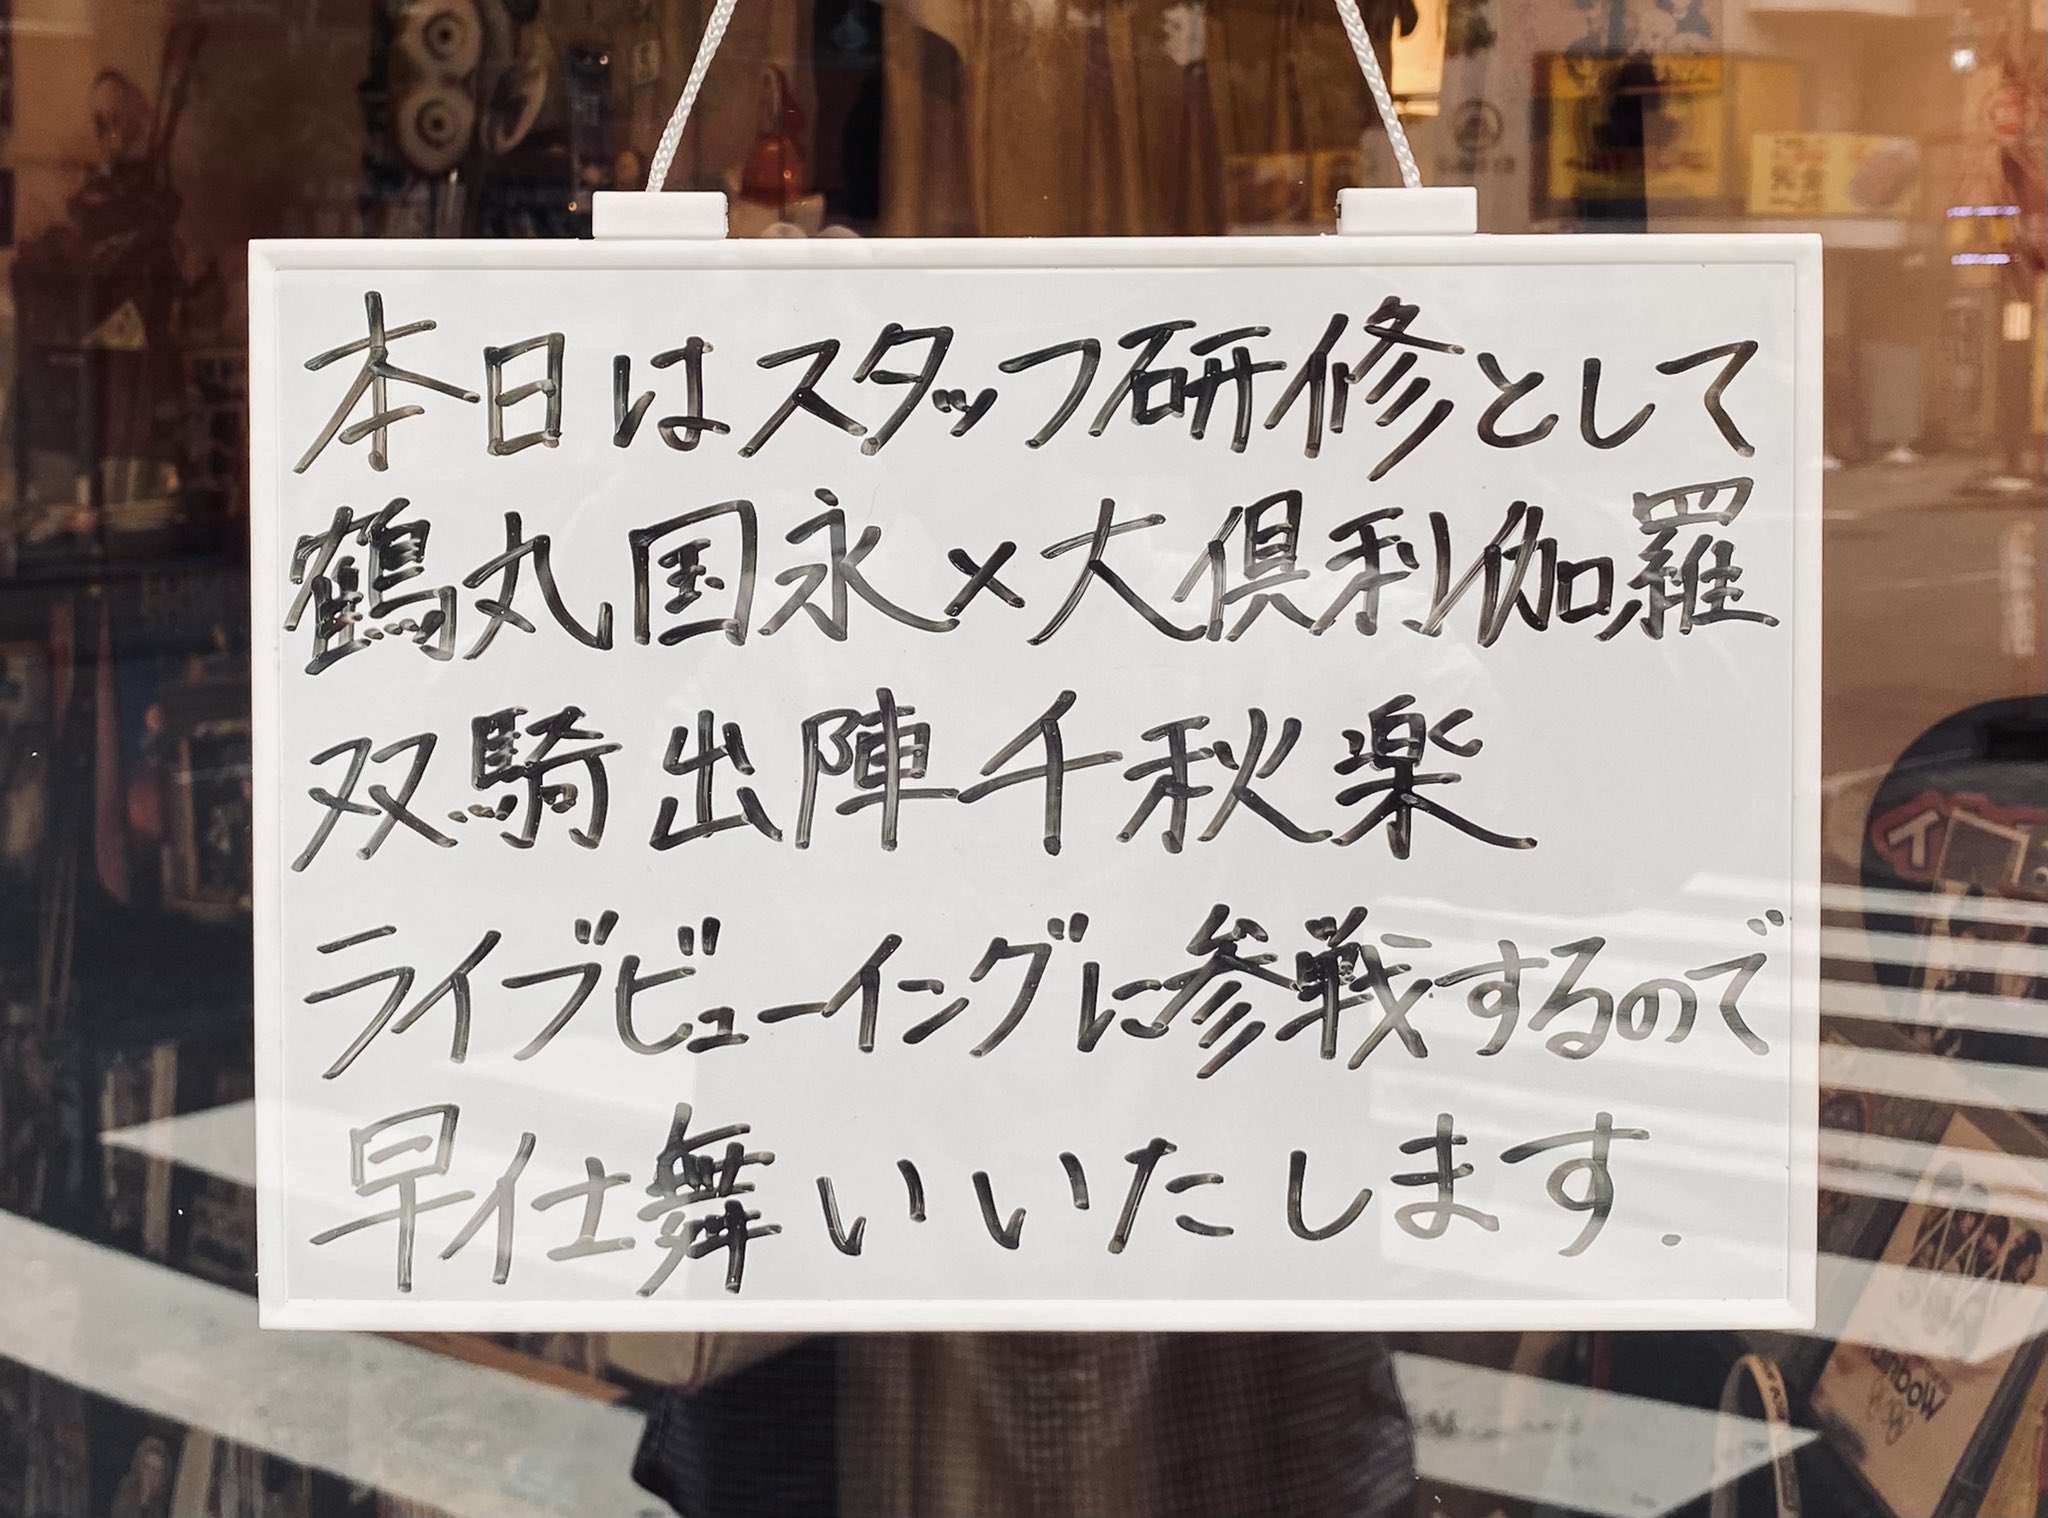 本日はスタッフ研修として
鶴丸国永×大倶利伽羅
双騎出陣千秋楽
ライブビューイングに参戦するので
早仕舞いいたします.
rainbow